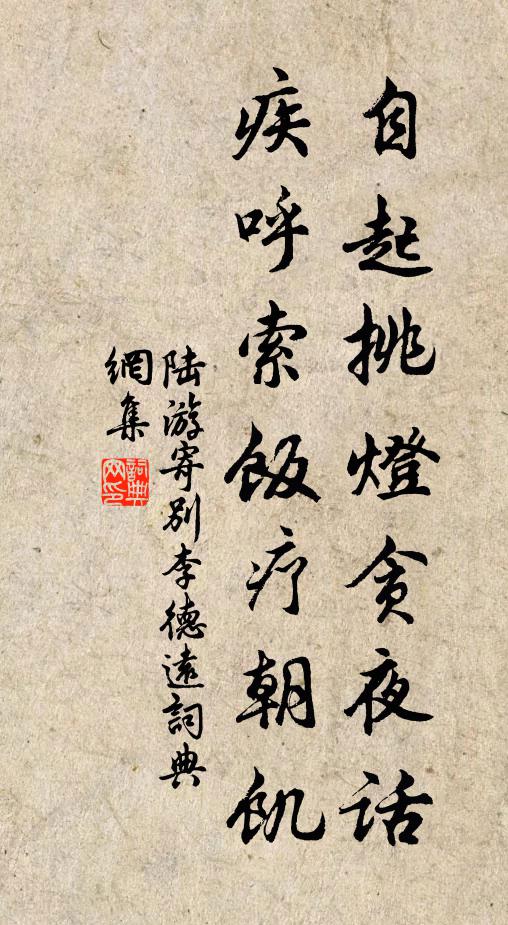 自起挑燈貪夜話
疾呼索飯疗朝飢
陆游寄别李德遠詞典
網集
詞典
网印